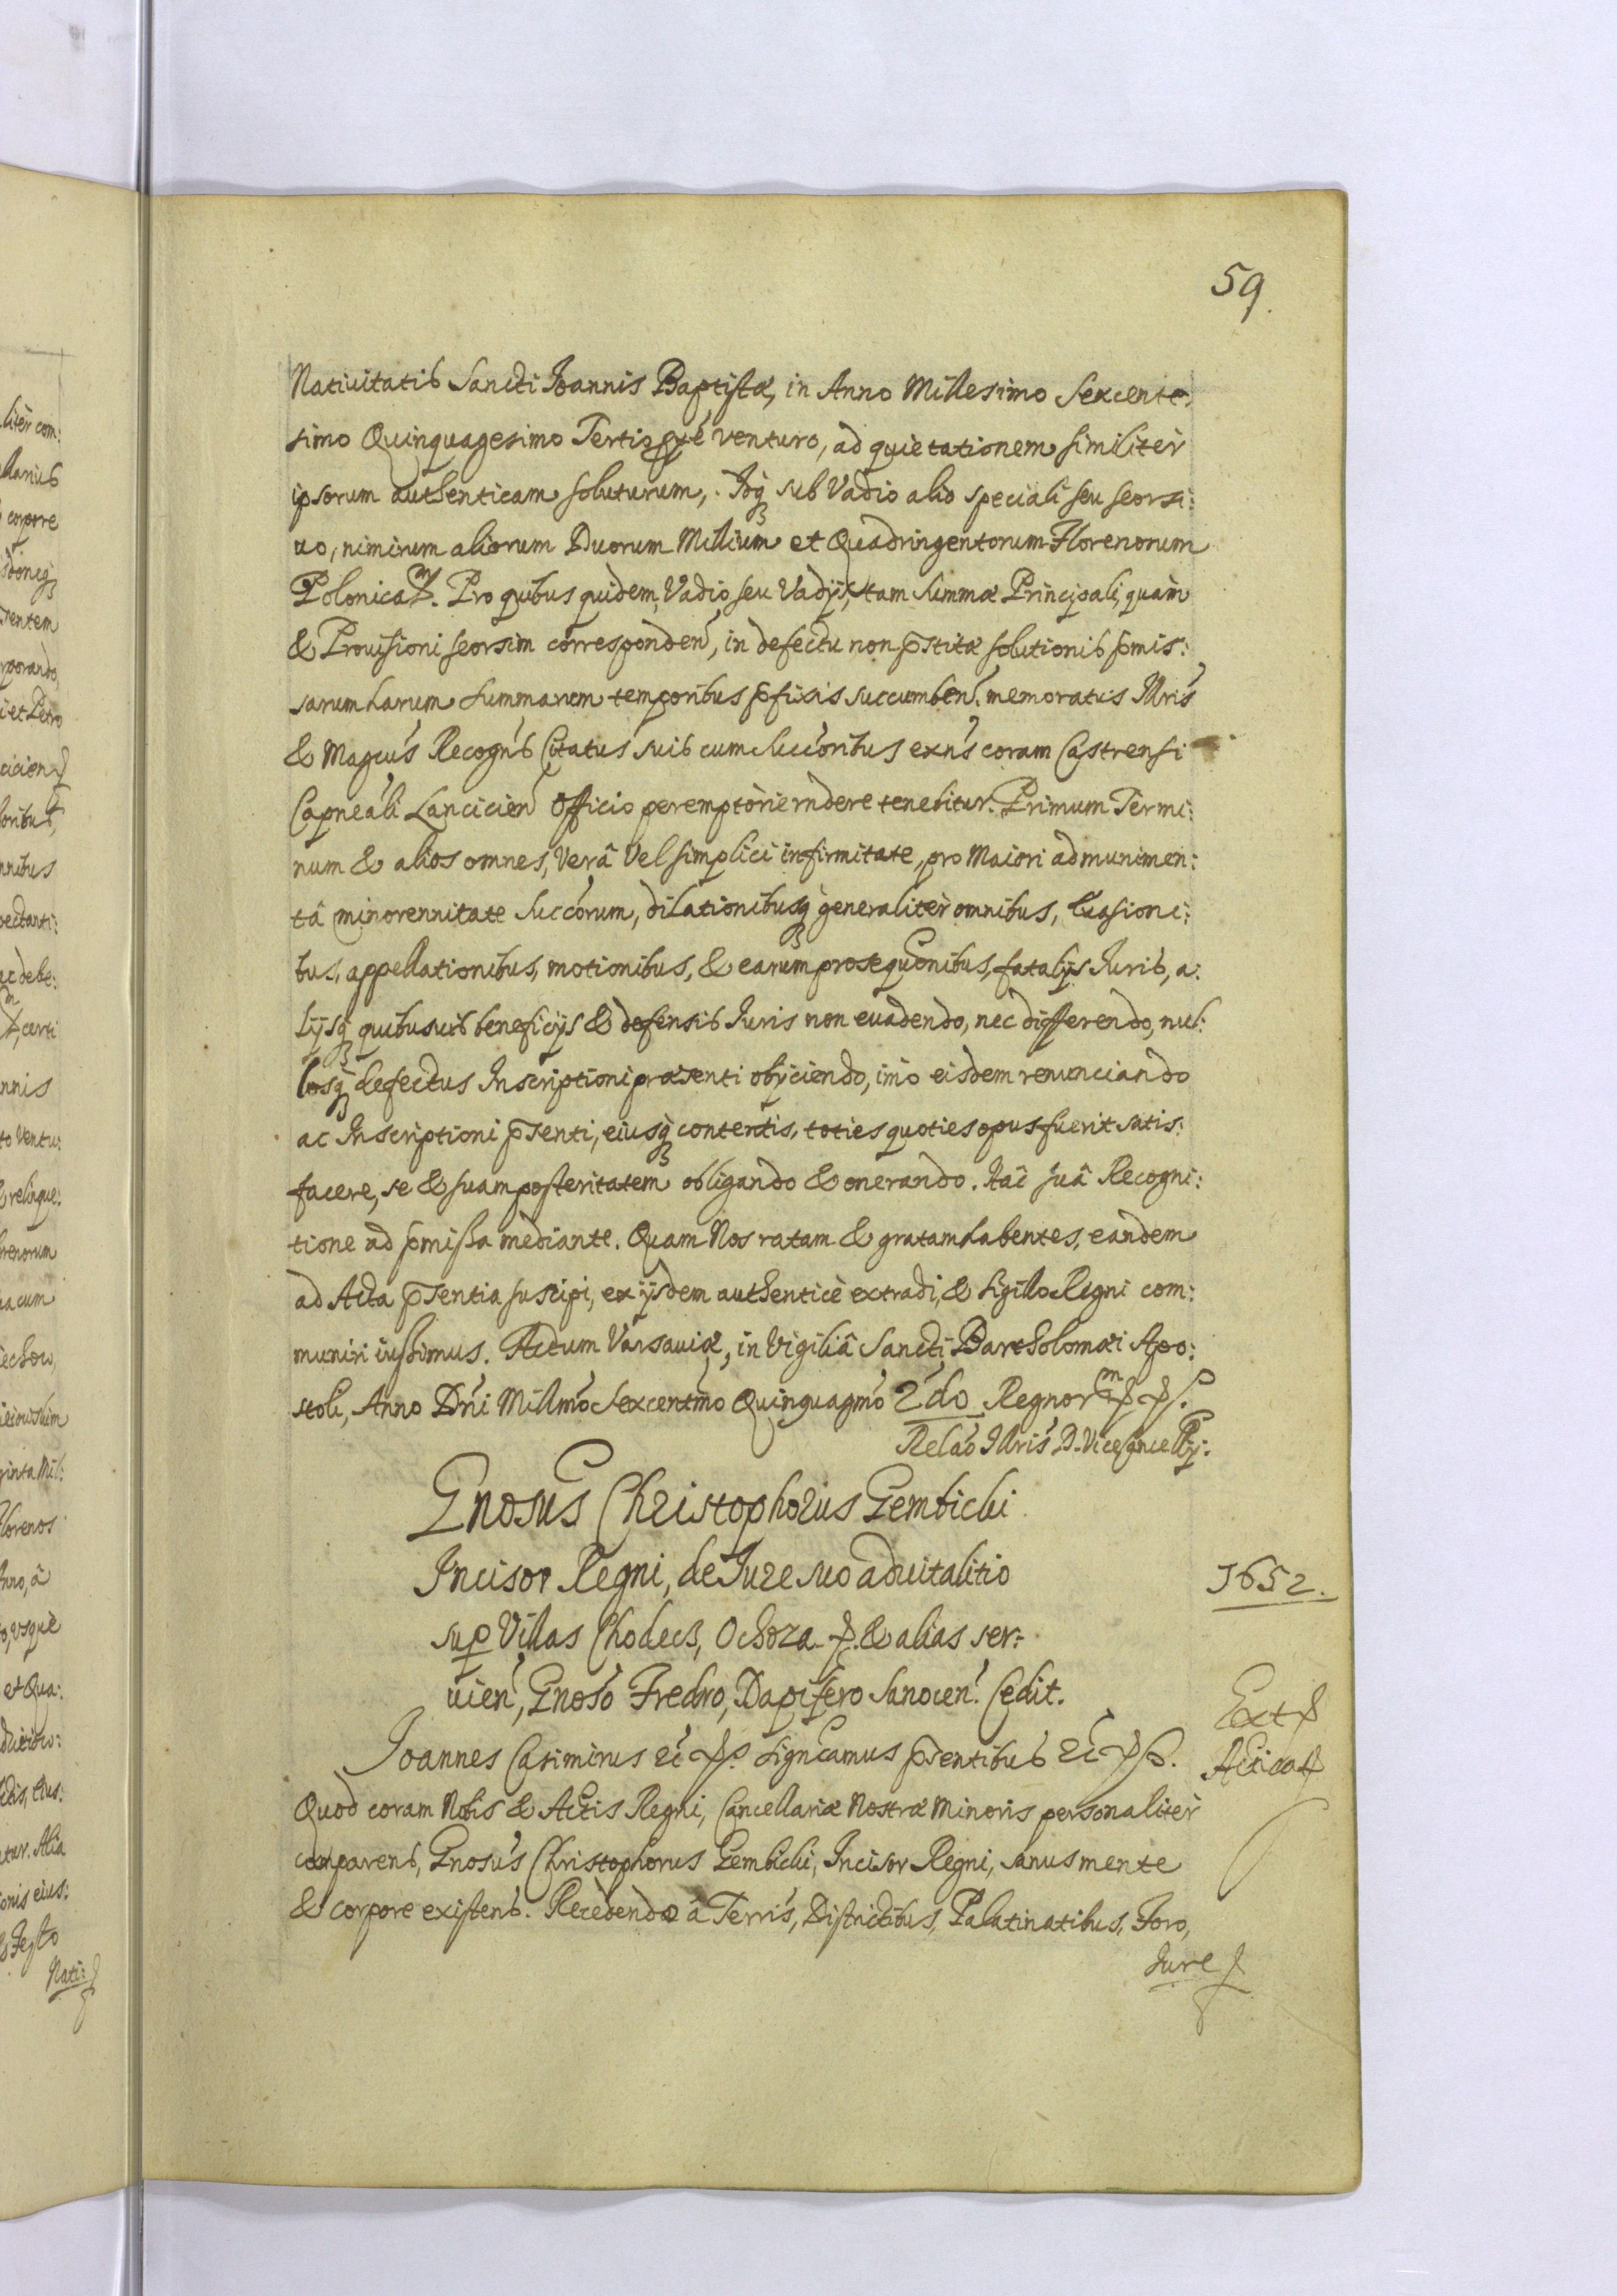 59.
Nativitatis Sancti Joannis Baptistæ, in Anno Millesimo Sexcente-
simo Quinquagesimo Tertio pxe venturo, ad quietationem similiter
ipsorum authenticam soluturum, Idq sub Vadio alio speciali seu seorsi:
uo, nimirum aliorum Duorum Millium et Quadringentorum Florenorum
Polonical. Pro quibus quidem, Vadio seu Vadijs, tam summæ Principali, quàm
& Prouisioni seorsim corresponden, in defectu non pstitæ solutionis pmis:
sarum harum summarum temporibus pfixis succumben. memoratus Illris
& Magcus Recogns Citatus suis cum succoribus exns coram Castrensi
Capneali Lancicien Officio peremptorie rndere tenebitur. Primum Termi:
num & alios omnes, verâ vel simplici infirmitate, pro Maiori ad munimen:
tâ minorennitate succorum, dilationibusq generaliter omnibus, Euasioni:
bus, appellationibus, motionibus, & earum prosequonibus, fatalijs Juris, a:
lijsq quibusuis beneficijs & defensis Iuris non euadendo, nec differendo, nul:
losq defectus Inscriptioni præsenti obijciendo, imò eisdem renunciando
ac Inscriptioni psenti, eiusq contentis, toties quoties opus fuerit satis:
facere, se & suam posteritatem obligando & onerando. Hac suâ Recogni:
tione ad pmissa mediante. Quam Nos ratam & gratam habentes, eandem
ad Acta psentia suscipi, ex ijsdem authenticè extradi, & sigillo Regni com:
muniri iussimus. Actum Varsauiæ, in Vigiliâ Sancti Bartholomæi Apo:
stoli, Anno Dni Millmo Sexcentmo Quinquagmo 2do Regnor
Relao Illris D. Vicecancellrij.
Gnosus Christophorus Gembicki
Incisor Regni, de Iure suo aduitalitio
sup Villas Chodecz, Ochoza & alias ser:
uien, Gnoso Fredro, Dapifero Sanocen. Cedit.
1652.
Ext
Joannes Casimirus etc Signcamus psentibus etc
Quod coram Nobis & Actis Regni, Cancellariæ Nostræ Minoris personaliter
comparens, Gnosus Christophorus Gembicki, Incisor Regni, sanus mente
& corpore existens. Recedendo â Terris, Districtibus, Palatinatibus, Foro,
Iure